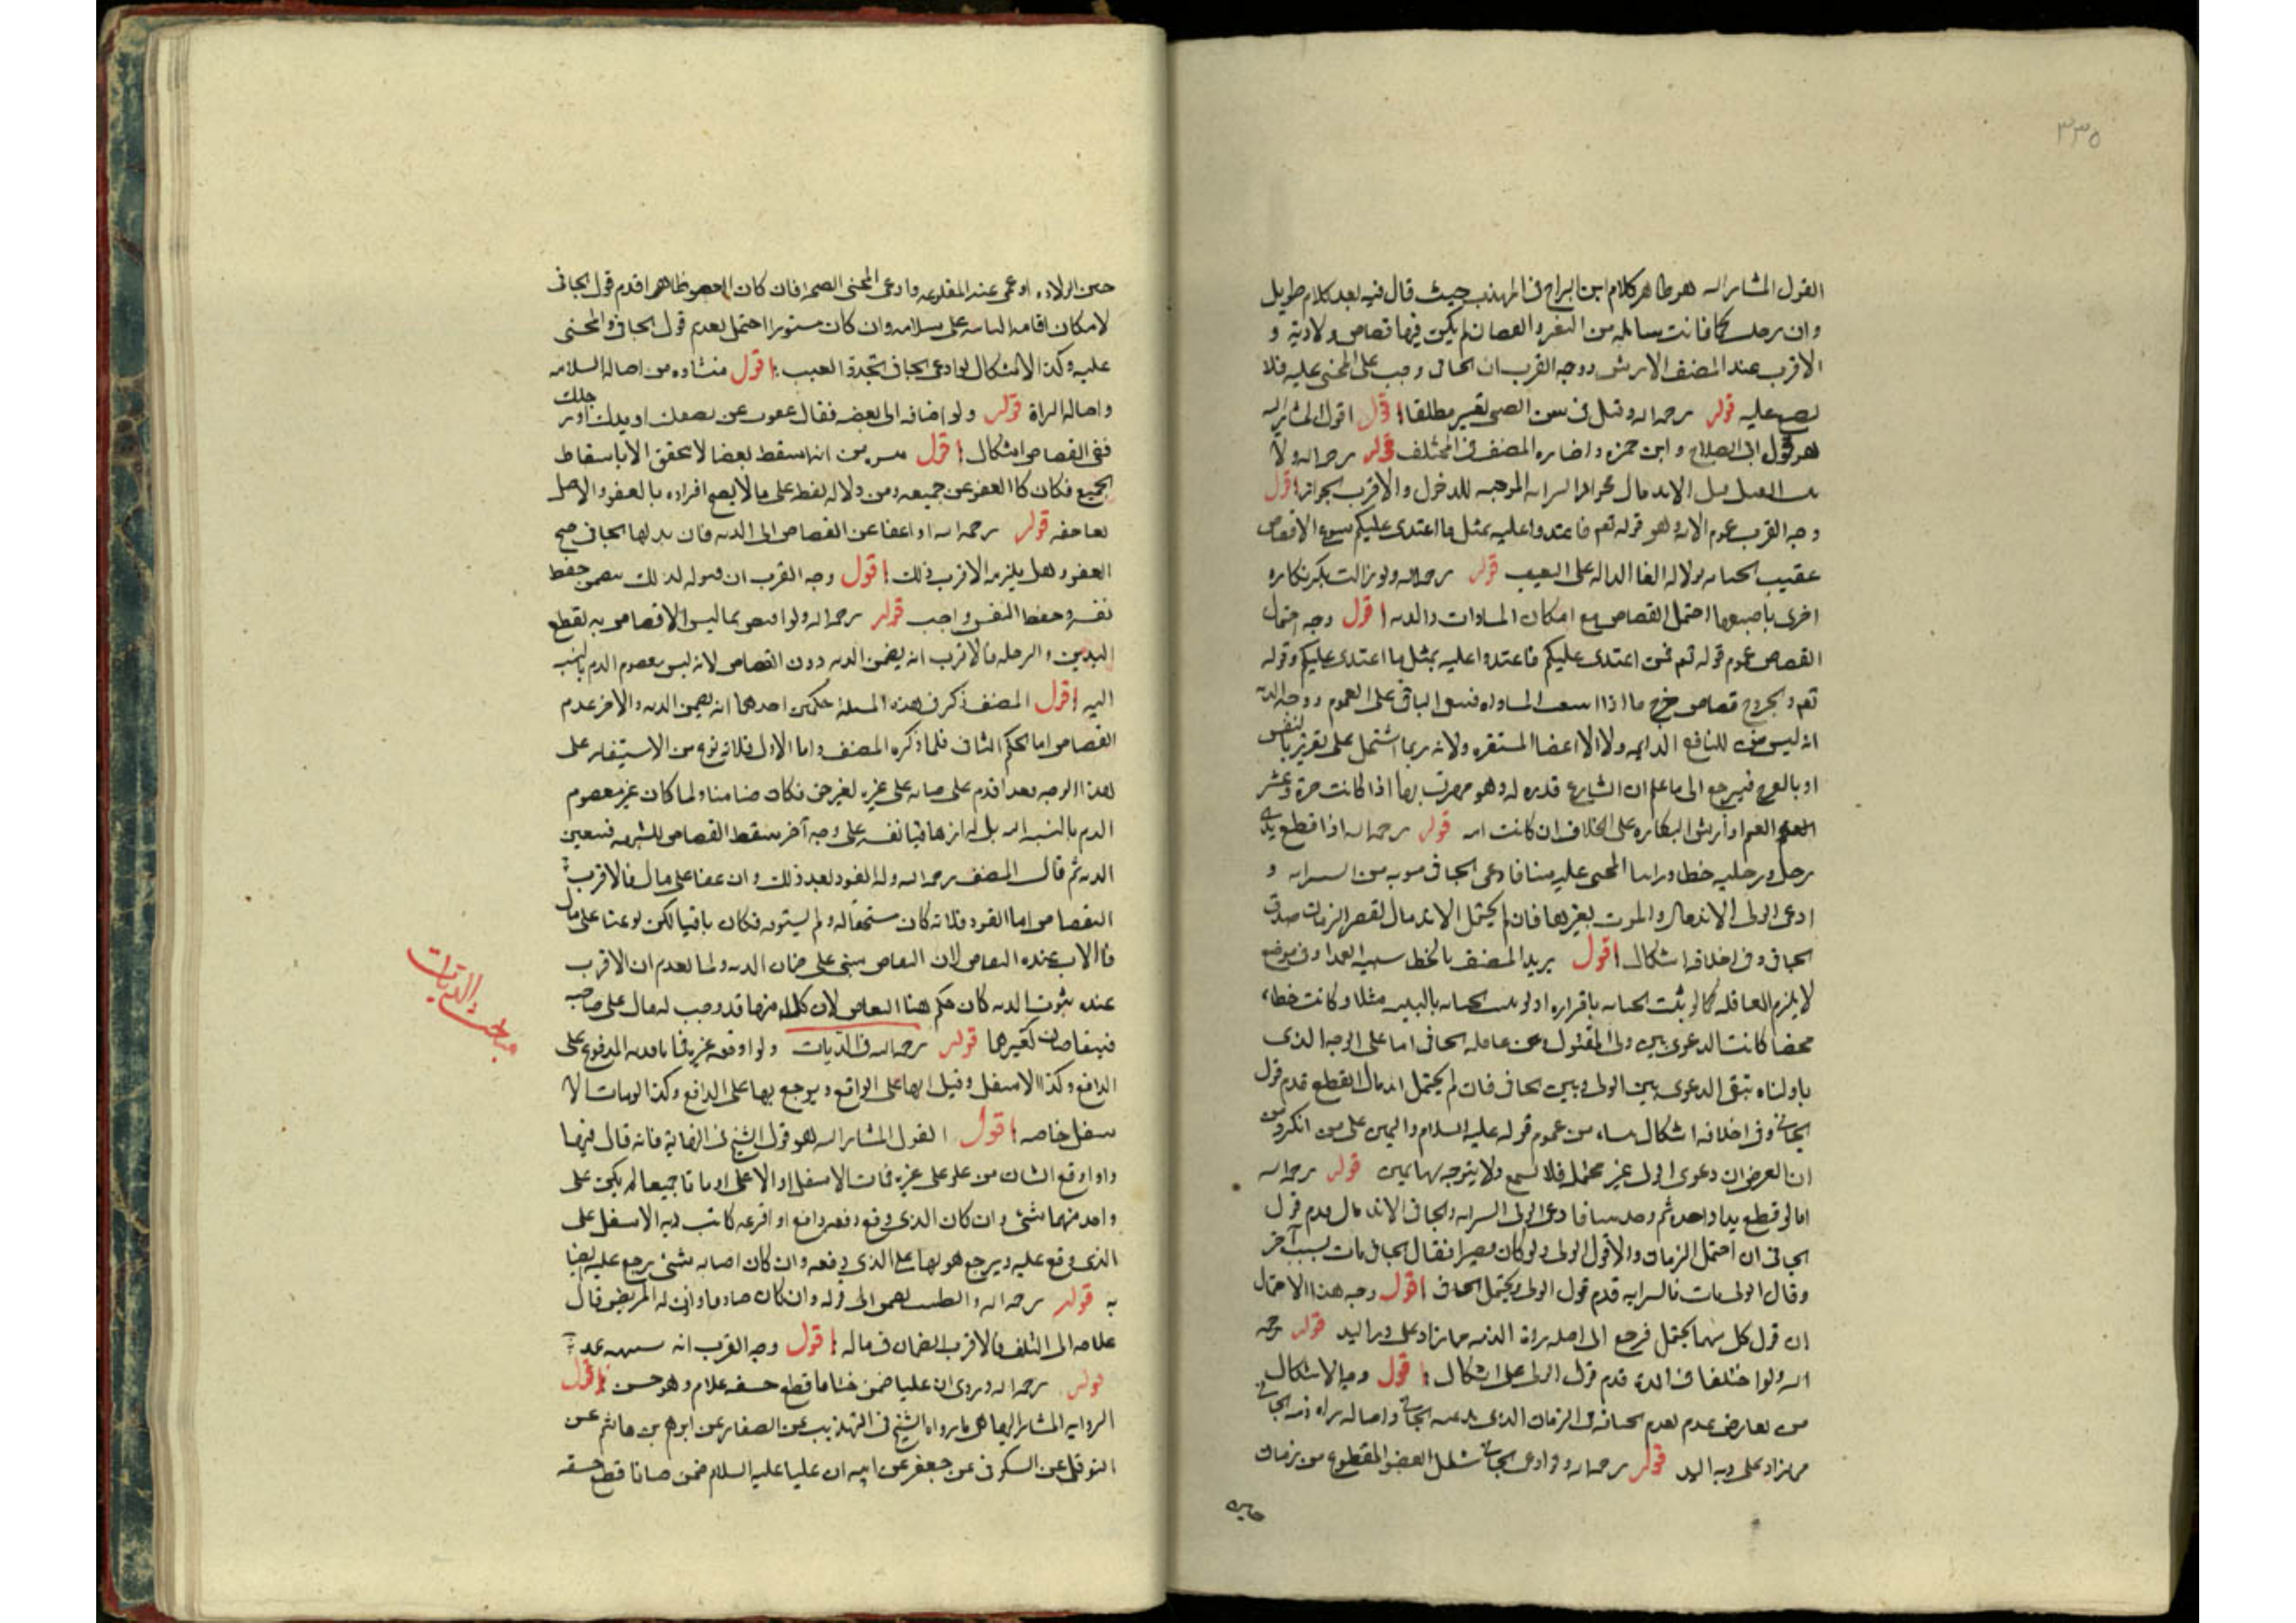 ٣٣٥
القول المشار اليه هو ظاهر كلام ابن البراج فى المهذب حيث قال فيه بعد كلام طويل
وان رجلا من الثغر والعصا ن لم يكن فيها قصاص ولا دية و
الاقرب عند المصنف الارش ووجه القرب ان الجانى وجب على المجنى عليه فلا
عليه قوله رحمه الله وقيل فى سن الصبى بعير مطلقا اقول المشار اليه
هو قول ابى الصلاح و ابن حمزه واختاره المصنف فى المختلف قوله رحمه الله ولا
قبل الاندمال السرايه الموجبه للدخول والاقرب الجواز اقول
وجه القرب عموم الآية وهو قوله تعم فاعتدوا عليه بمثل ما اعتدى عليكم
عقيب لدلالة الفا الداله على التعقيب قوله رحمه الله ولو زالت بكر بكاره
اخرى باصبعها احتمل القصاص مع امكان المساوات والديه اقول وجه احتمال
القصاص عموم قوله تعم فمن اعتدى عليكم فاعتدوا عليه بمثل ما اعتدى عليكم وقوله
تعم والجروح قصاص خرج ما اذا المساواه فيبقى الباقى على العموم ووجه الديه
انه ليس من المنافع الدايمه ولا الاعضا المستقره ولانه ربما اشتمل على تغرير بالنفس
او بالعرج فيرجع الى ما علم ان الشارع قدره له وهو مهرت بها اذا كانت حرة وعشر
القيم او ارش البكاره على الخلاف ان كانت امه قوله رحمه الله اذا قطع يدى
رجل ورجليه خطا المجنى عليه فادعى الجانى موته من السرايه و
ادعى الولى الاندمال والموت بغيرها فان لم يحتمل الاندمال لقصر الزمان صدق
الجانى وفى احلافه اشكال اقول يريد المصنف بالخطا شبيه العمد او فى موضع
لا يلزم العاقله كما لو ثبت الجنايه باقراره او لو ثبت الجنايه بالبينه مثلا وكانت خطاء
محضا كانت الدعوى بين ولى المقتول وبين عاقله الجانى اما على الوجه الذى
تبقى الدعوى بين الولى وبين الجانى فان لم يحتمل اندمال القطع قدم قول
الجانى وفى احلافه اشكال من عموم قوله عليه السلام واليمين على من انكر ومن
ان الغرض ان دعوى الولى غير محتمله فلا تسمع ولا يتوجه بها يمين قوله رحمه الله
اما لو قطع يدا واحدة ثم فادعى الولى السرايه والجانى الاندمال قدم قول
الجانى ان احتمل الزمان والا قول الولى ولو كان قصيرا فقال الجانى مات بسبب آخر
وقال الولى مات بالسرايه قدم قول الولى ويحتمل الجانى اقول وجه هذا الاحتمال
ان قول كل منهما يحتمل فرجع الى اصل براة الذمه مما زاد على دية اليد قوله رحمه
الله ولو اختلفا فى المدة قدم قول الولى على اشكال اقول وجه الاشكال
من تعارض عدم تقدم الجنايه فى الزمان الذى يدعيه الجانى واصاله براه ذمه الجانى
مما زاد على دية اليد قوله رحمه الله ولو ادعى الجانى شلل العضو المقطوع من زمان
حين
حين الولادة او عمى عينه المقلوعه وادعى المجنى الصحه فان كان العضو ظاهرا قدم قول الجانى
لامكان اقامه البينه على سلامه وان كان مستورا احتمل تقديم قول الجانى والمجنى
عليه وكذا الاشكال لو ادعى الجانى تجدد العيب اقول منشاوه من اصاله السلامه
واصاله البراة قوله ولو اضافه الى بعضه فقال عفوت عن نصفك او يدك او رجلك
ففى القصاص اشكال اقول من انه اسقط بعضا لا يتحقق الا باسقاط
الجميع فكان كالعفو عن جميعه ومن دلاله لفظه على ما لا يصح افراده بالعفو والاصل
بقا حقه قوله رحمه الله اذا عفا عن القصاص الى الديه فان بذلها الجانى صح
العفو وهل يلزمه الاقرب ذلك اقول وجه القرب ان قبوله لذلك يتضمن حفظ
نفسه وحفظ النفس واجب قوله رحمه الله ولو اقتص بما ليس الاقتصاص به لقطع
اليدين و الرجلين فالاقرب انه يضمن الديه دون القصاص لانه ليس بمعصوم الدم بالنسبه
اليه اقول المصنف ذكر فى هذه المسئلة حكمين احدهما انه يضمن الديه والاخر عدم
القصاص اما الحكم الثانى فلما ذكره المصنف واما الاول فلانه نوع من الاستيفاء على
هذا الوجه فقد اقدم على جنايه على غيره لغير حق فكان ضامنا ولما كان غير معصوم
الدم بالنسبه اليه بل له ازهاق نفسه على وجه آخر سقط القصاص للشبهه فيتعين
الديه ثم قال المصنف رحمه الله وله القود بعد ذلك وان عفا على مال فالاقرب
التقصاص اما القود فلانه كان مستحقا له ولم يستوفه فكان باقيا لكن لو عفا على مال
فالاقرب عنده التقاص لان التقاص مبنى على ضمان الديه ولما تقدم ان الاقرب
عنده ثبوت الديه كان حكم هنا التقاص لان كلا منهما قد وجب له مال على صاحبه
فيتقاصان كغيرها قوله رحمه الله فى الديات ولو اوقعه غيره فماتا فديه المدفوع على
الدافع وكذا الاسفل وقيل انها على الواقع ويرجع بها على الدافع وكذا لو مات الا
سفل خاصه اقول القول المشار اليه هو قول الشيخ فى النهاية فانه قال فيها
واذا وقع انسان من علو على غيره فمات الاسفل او الاعلى او ماتا جميعا لم يكن على
واحد منهما شئ وان كان الذى وقع دفعه دافع او افزعه كانت ديه الاسفل على
الذى وقع عليه ويرجع هو بها على الذى دفعه وان كان اصابه شئ يرجع عليه ايضا
به قوله رحمه الله والطبيب الى قوله وان كان حاذقا واذن له المريض فال
علاجه الى التلف فالاقرب الضمان فى ماله اقول وجه القرب انه شبيه عمد
قوله رحمه الله وروى ان عليا ضمن ختانا قطع حشفه غلام وهو حسن اقول
الروايه المشار اليها هى ما رواه الشيخ فى التهذيب عن الصفار عن ابرهيم بن هاشم عن
النوفلى عن السكونى عن جعفر عن ابيه ان عليا عليه السلام ضمن ختانا قطع حشفه
مباحث الديات